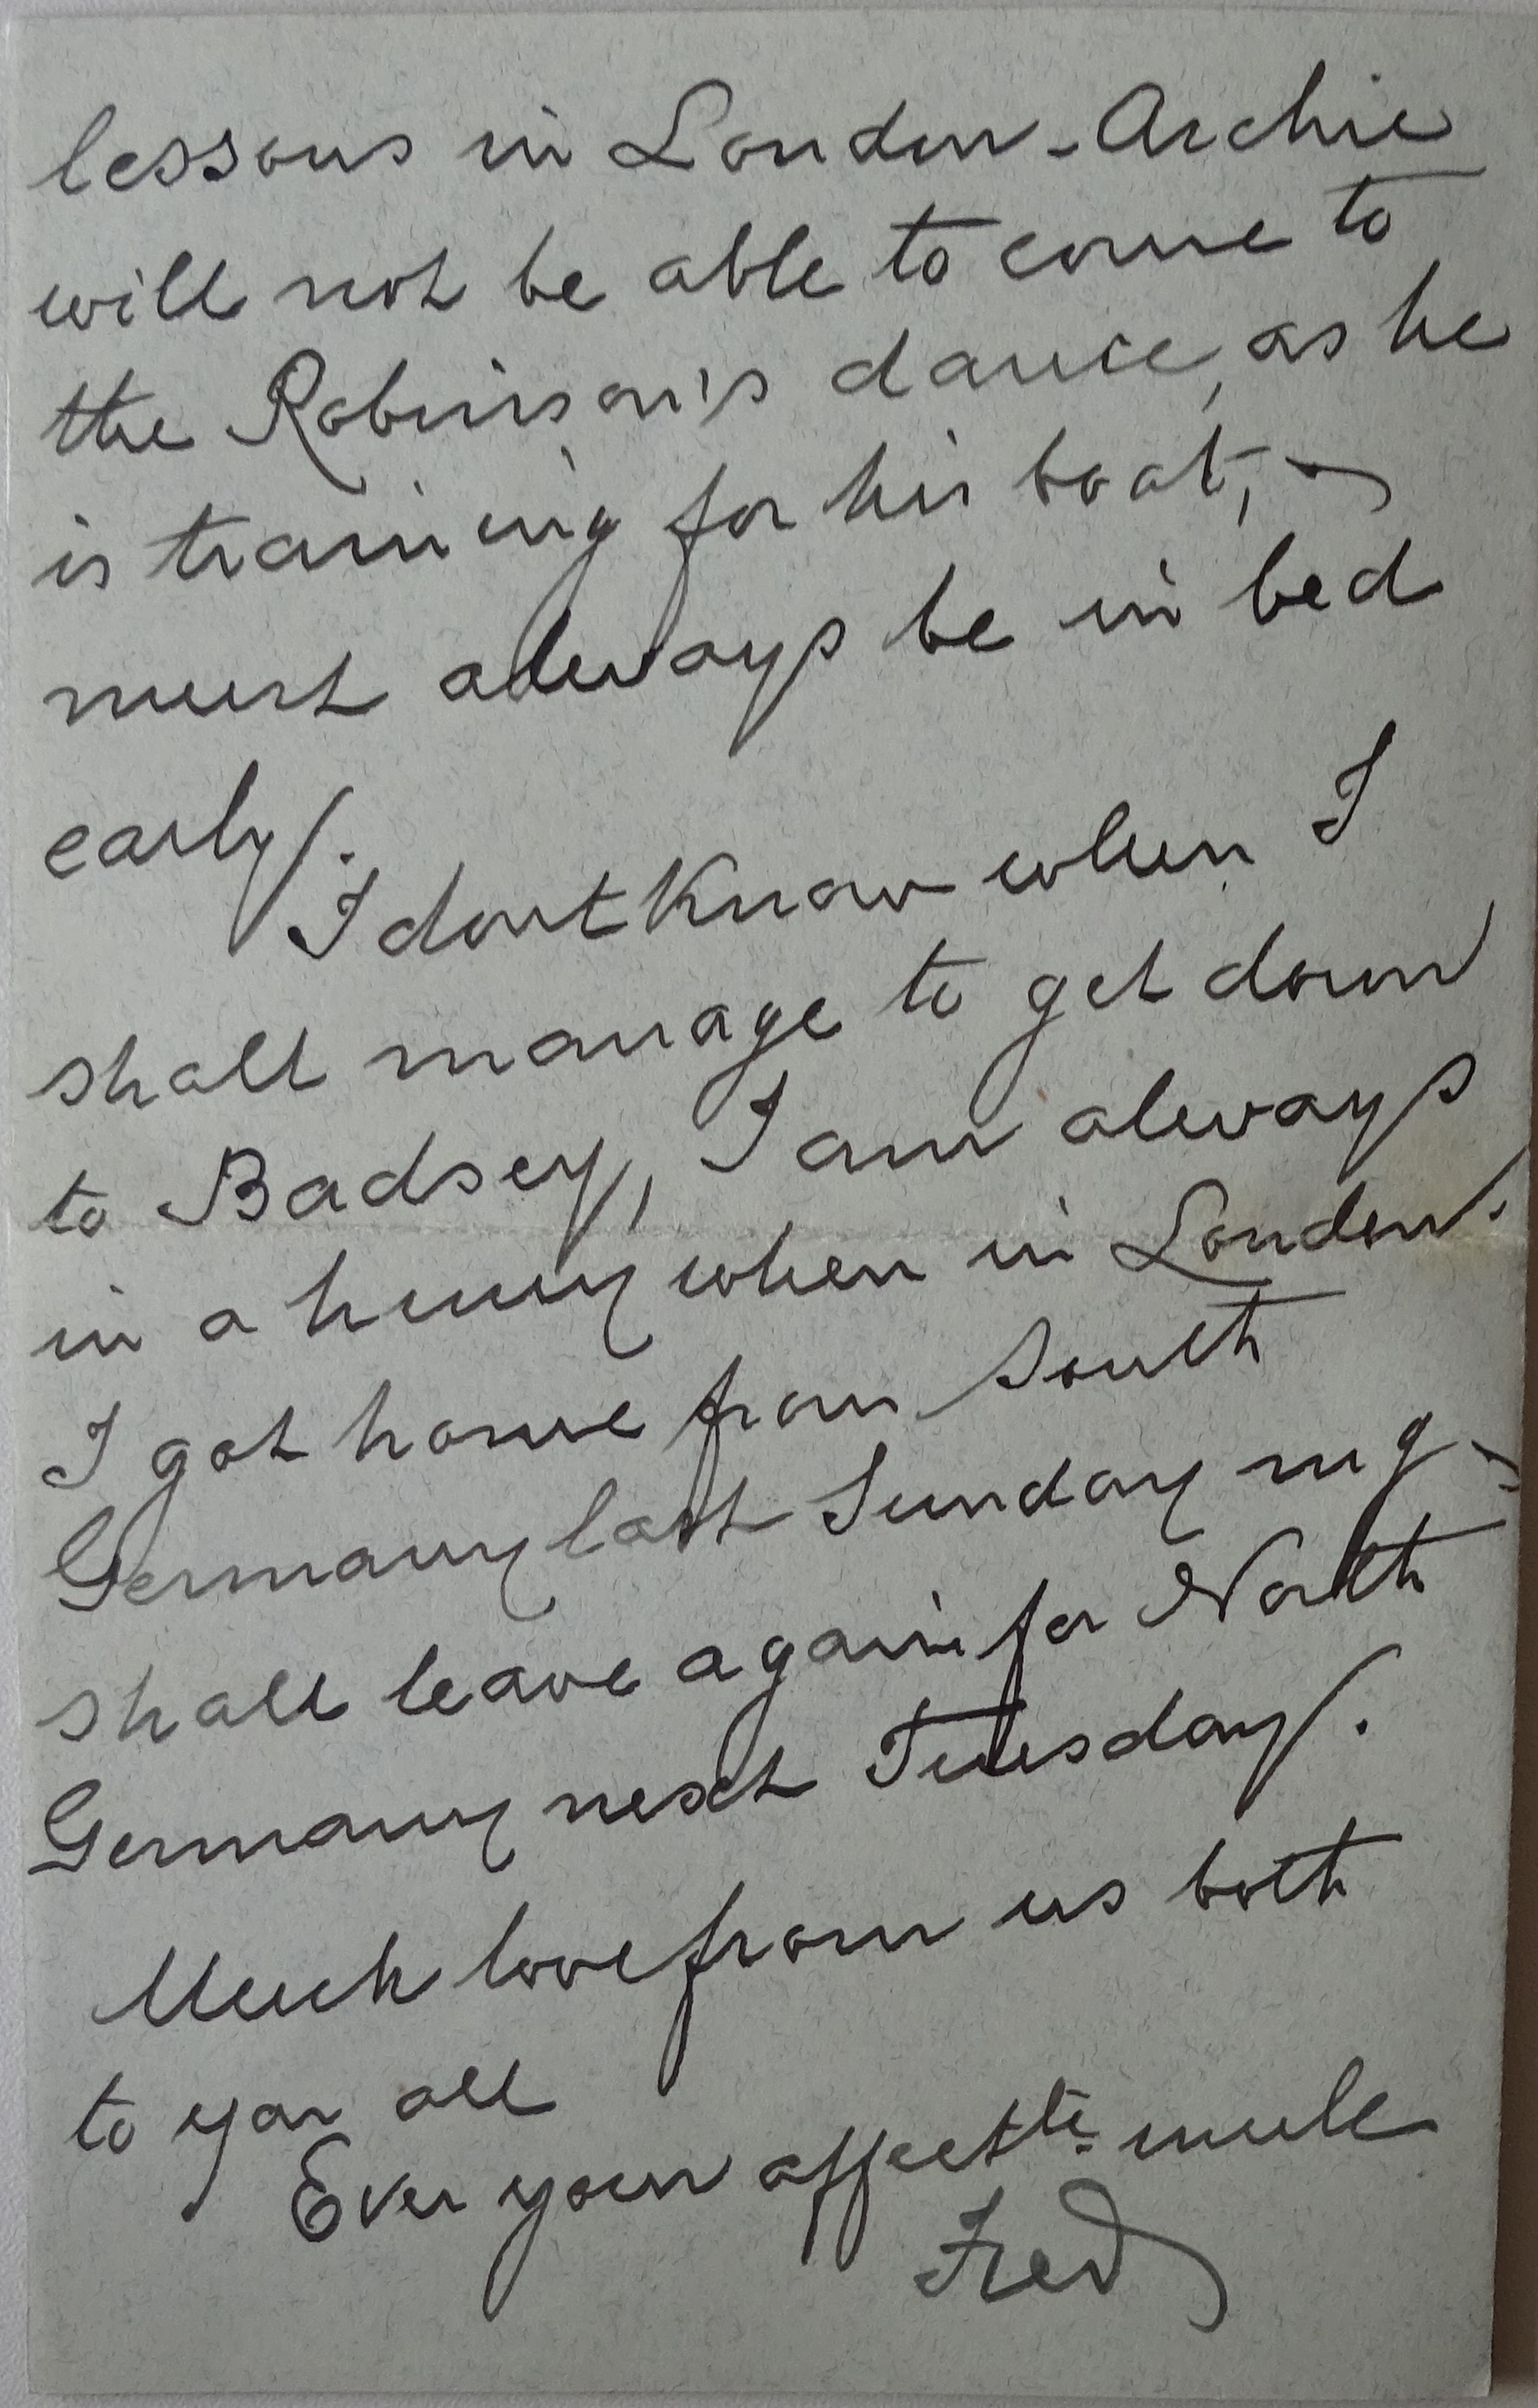 lessons in London - Archie
will not be able to come to
the Robinson's dance, as he
is training for his boat, &
must always be in bed
early.
I dont know when I
shall manage to get down
to Badsey, I am always
in a hurry when in London.
I got home from South
Germany last Sunday mg &
shall leave again for North
Germany next Tuesday.
Much love from us both
to you all
Ever your affectte uncle
Fred